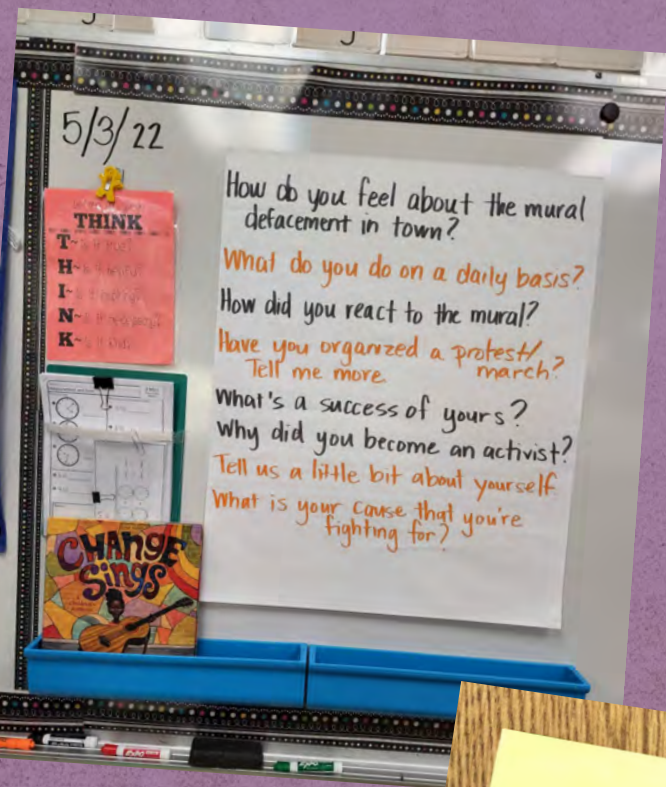 5/3/22
THINK
T~
H~
I~
N~
K~
How do you feel about the mural
defacement in town?
What do you do on a daily basis?
How did you react to the mural?
Have you organized a protest/
march?
Tell me more
What's a success of yours?
Why did you become an activist?
Tell us a little bit about yourself
What is your cause that you're
fighting for?
CHANGE
Sings
EXPO